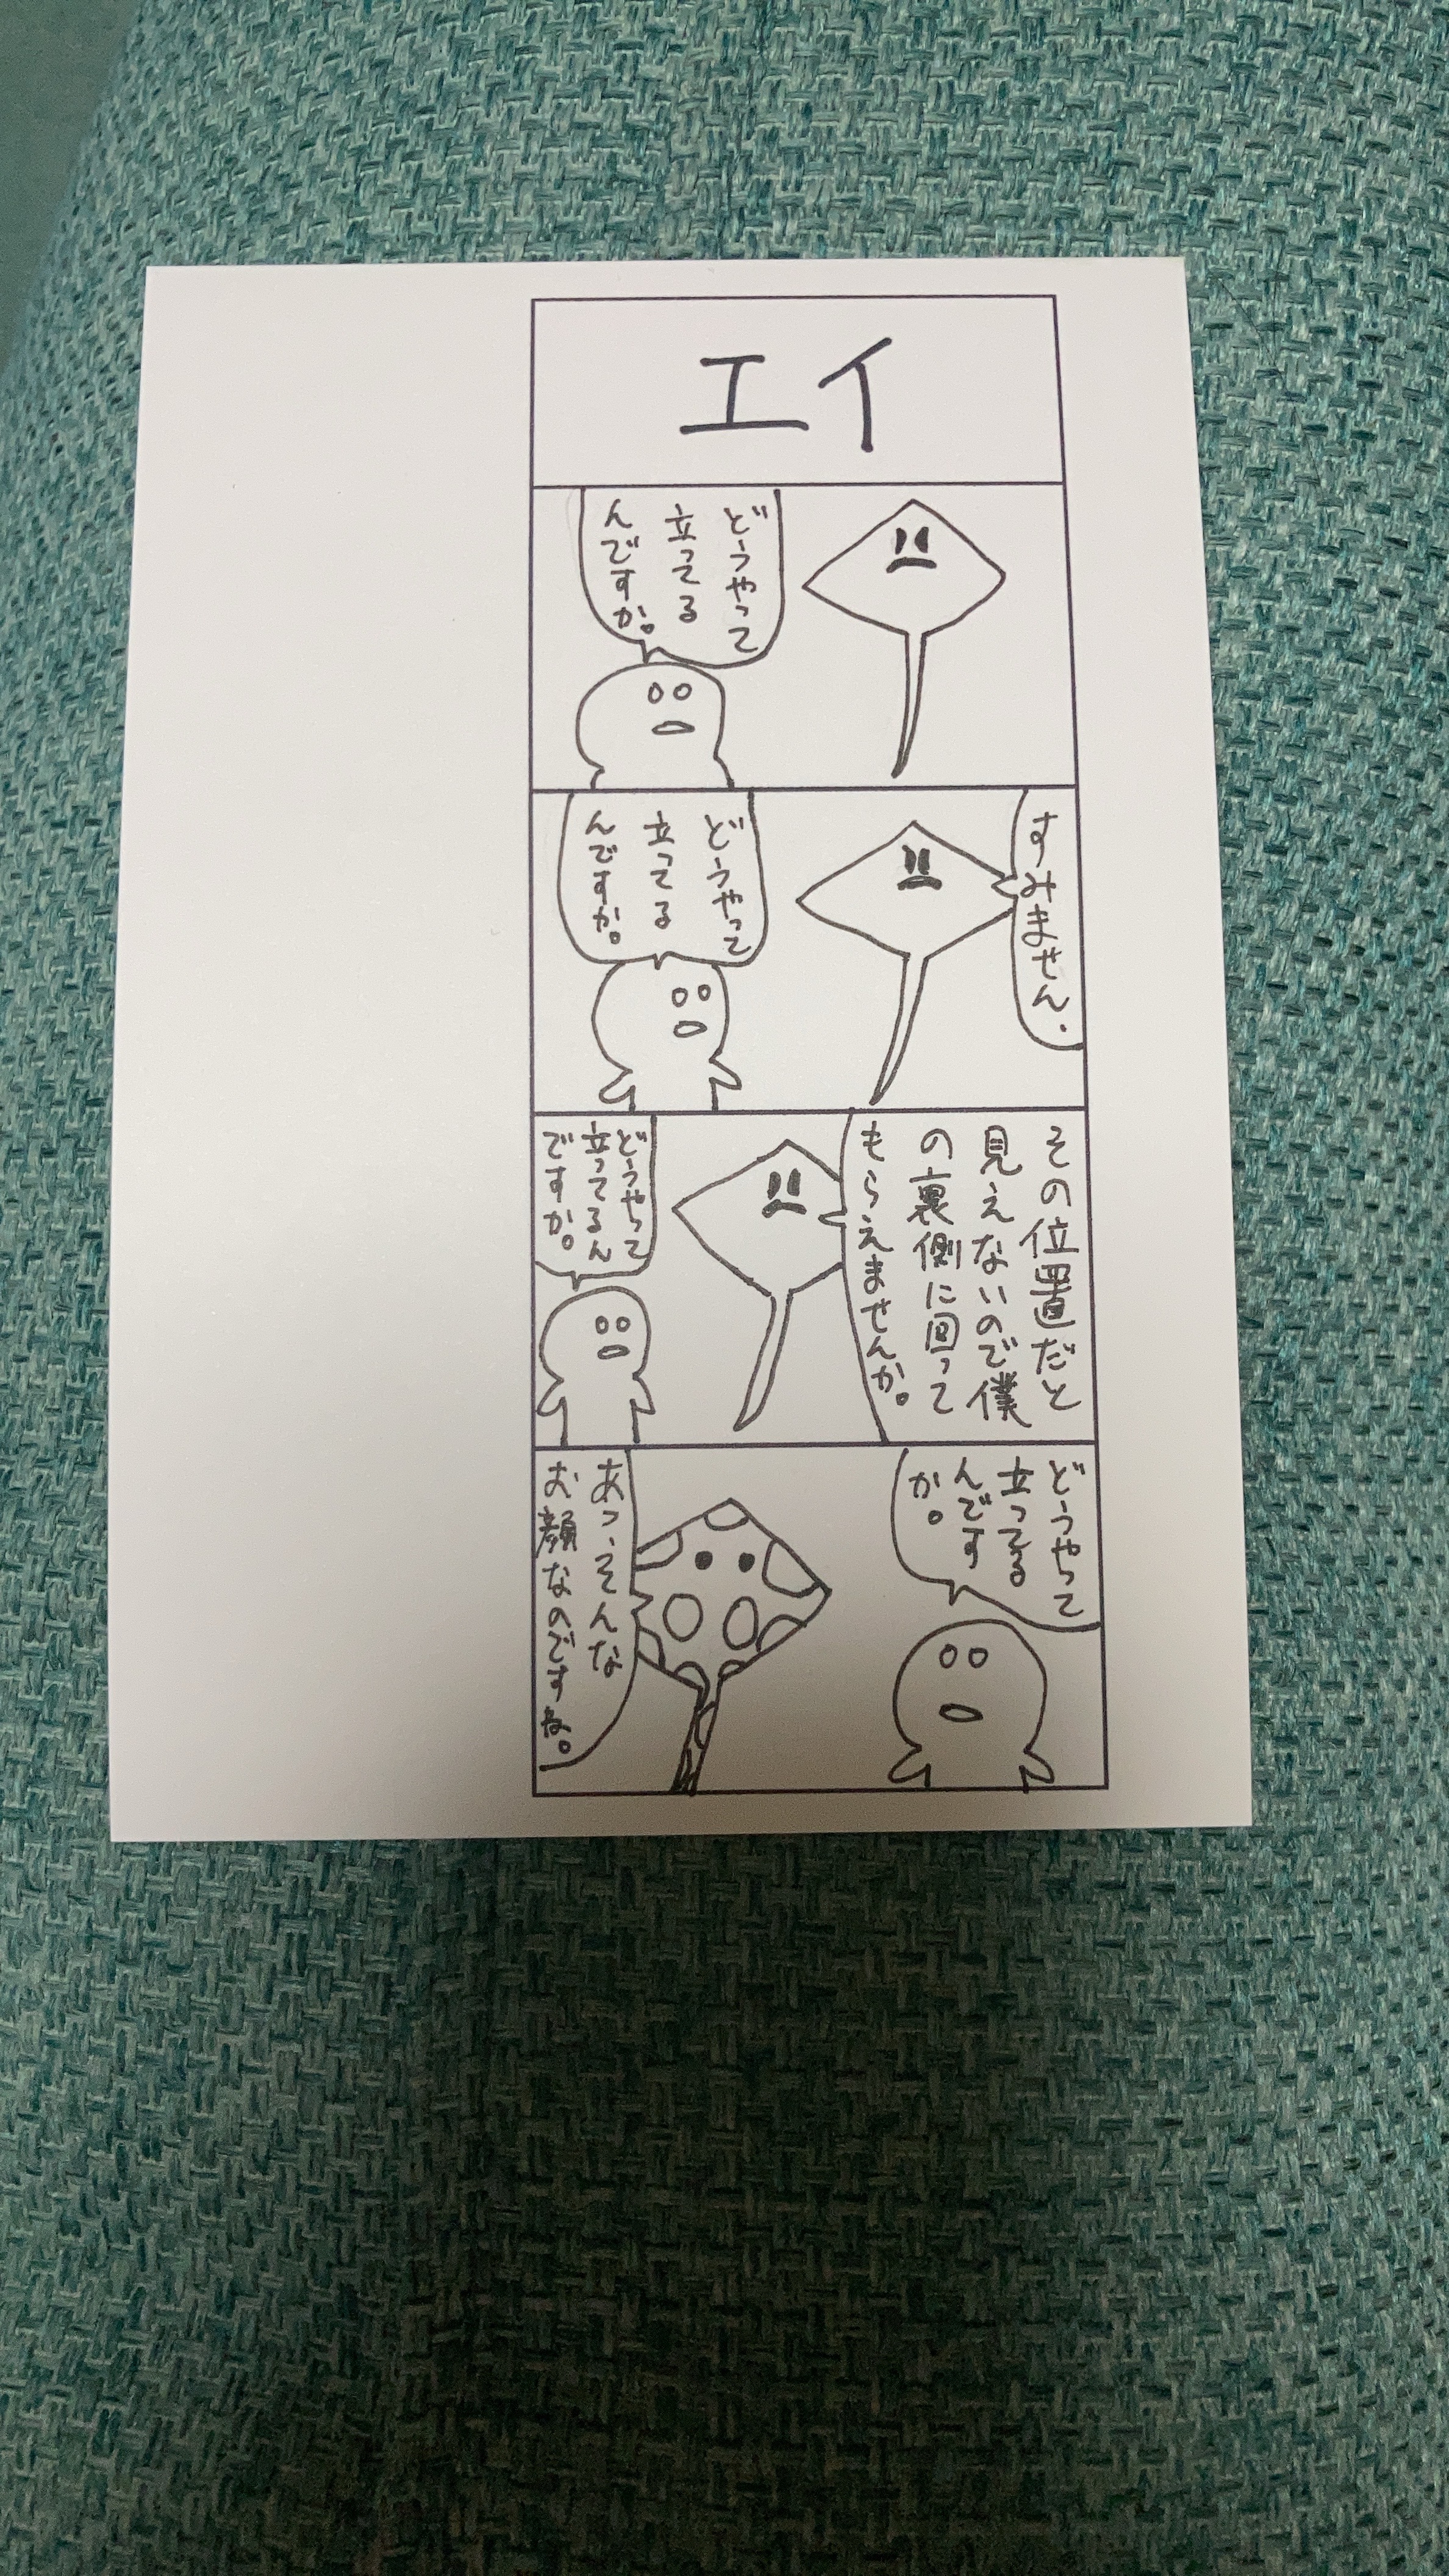 エイ
どうやって
立ってる
んですか。
すみません.
どうやって
立ってる
んですか。
その位置だと
見えないので僕
の裏側に回って
もらえませんか。
どうやって
立ってるん
ですか。
どうやって
立ってる
んです
か。
あっ、そんな
お顔なのですね。